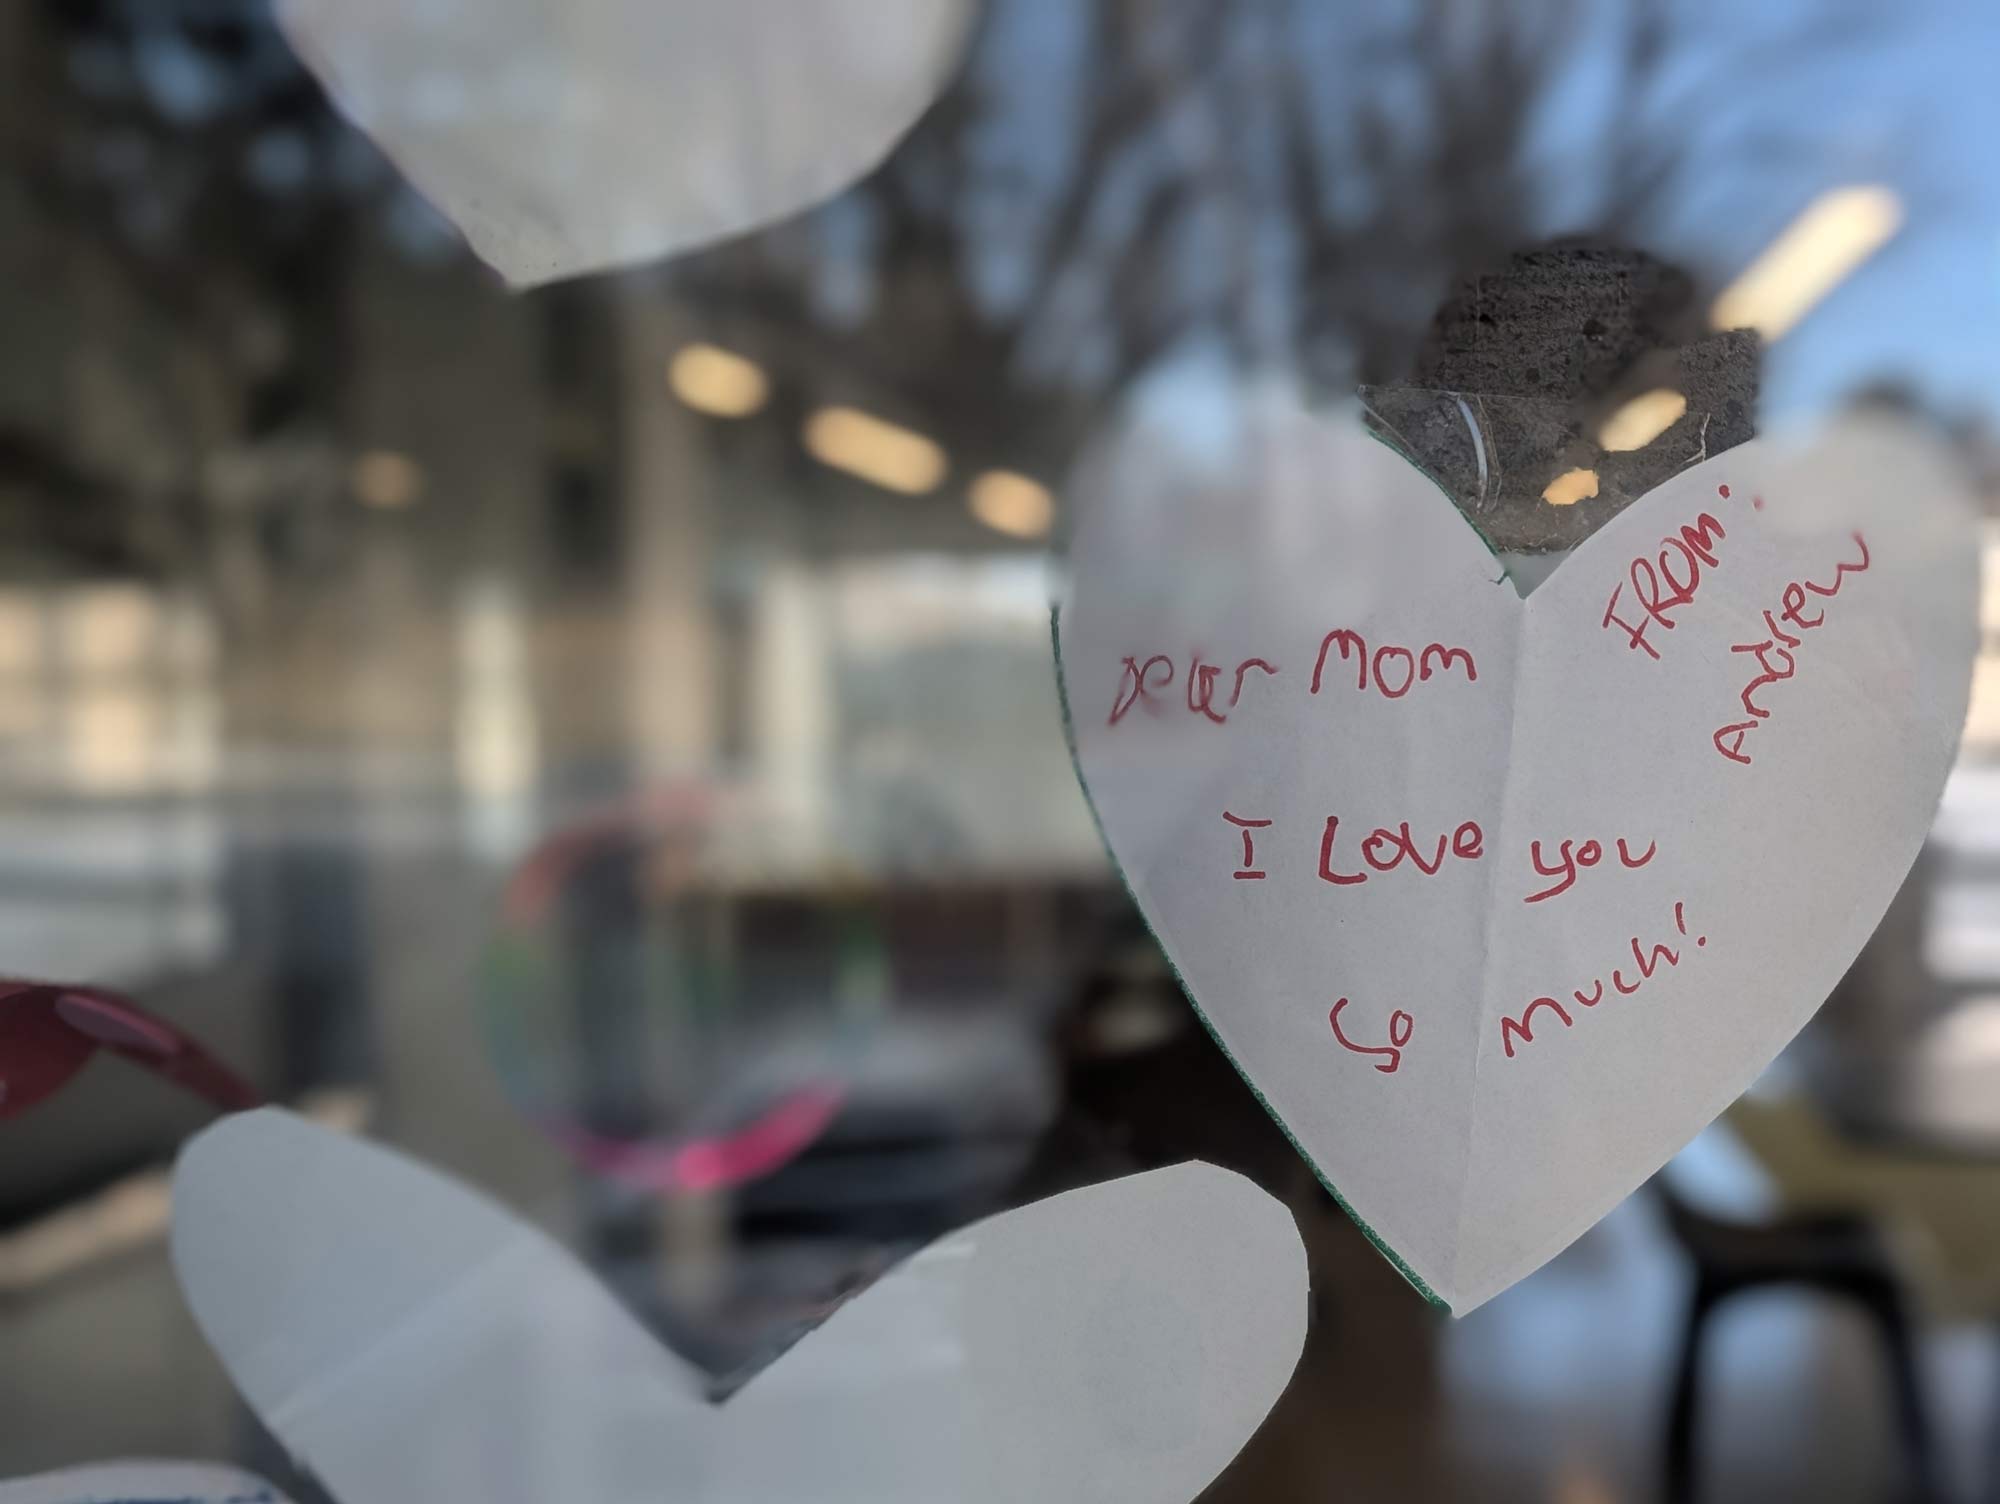 Dear Mom
I Love you
So Much!
FROM:
Andrew